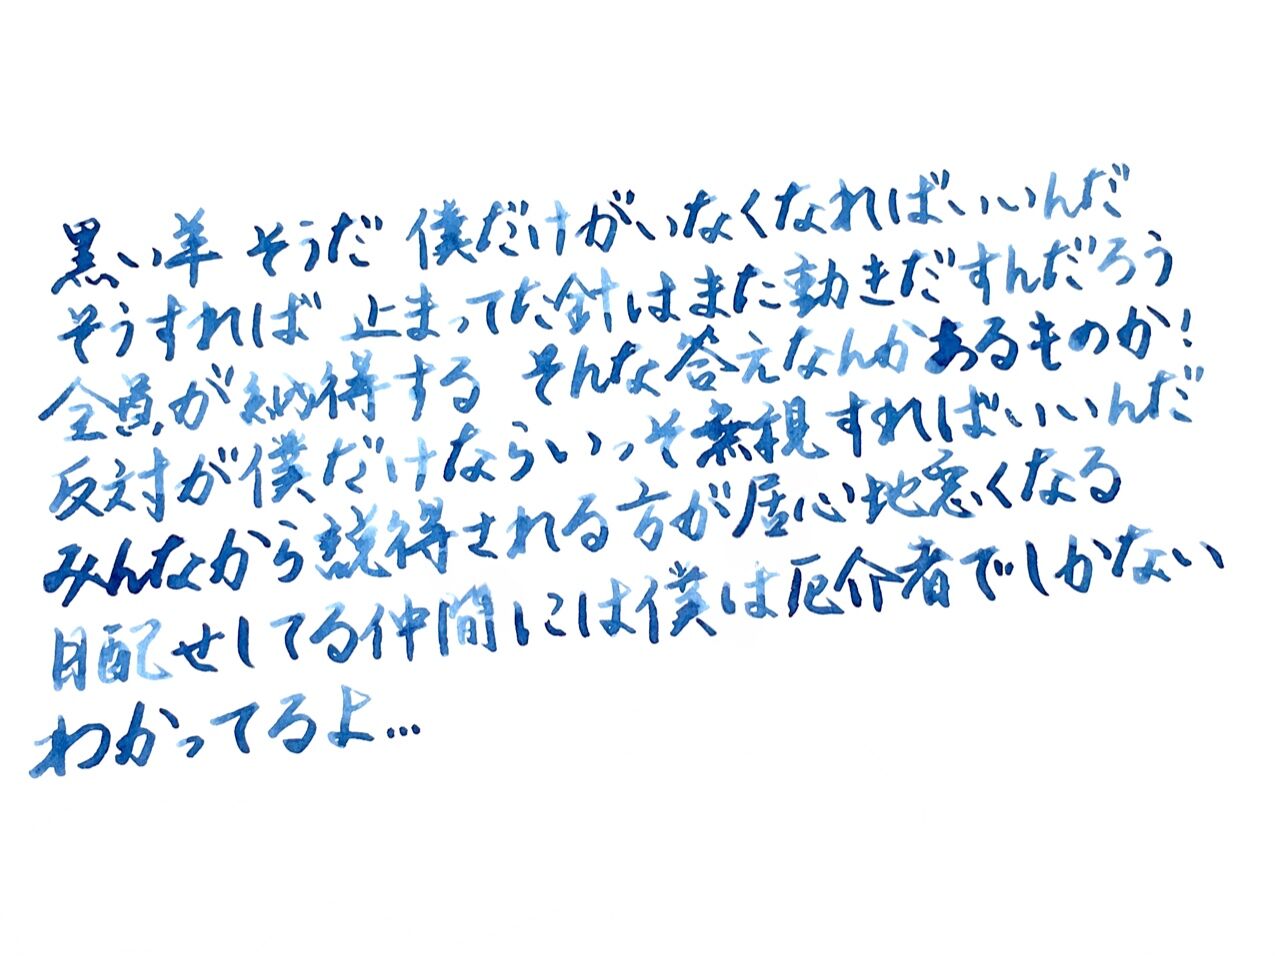 黒い羊 そうだ 僕だけがいなくなればいいんだ
そうすれば 止まってた針はまた動きだすんだろう
全員が納得する そんな答えなんかあるものか!
反対が僕だけならいっそ無視すればいいんだ
みんなから説得される方が居心地悪くなる
目配せしてる仲間には僕は厄介者でしかない
わかってるよ…